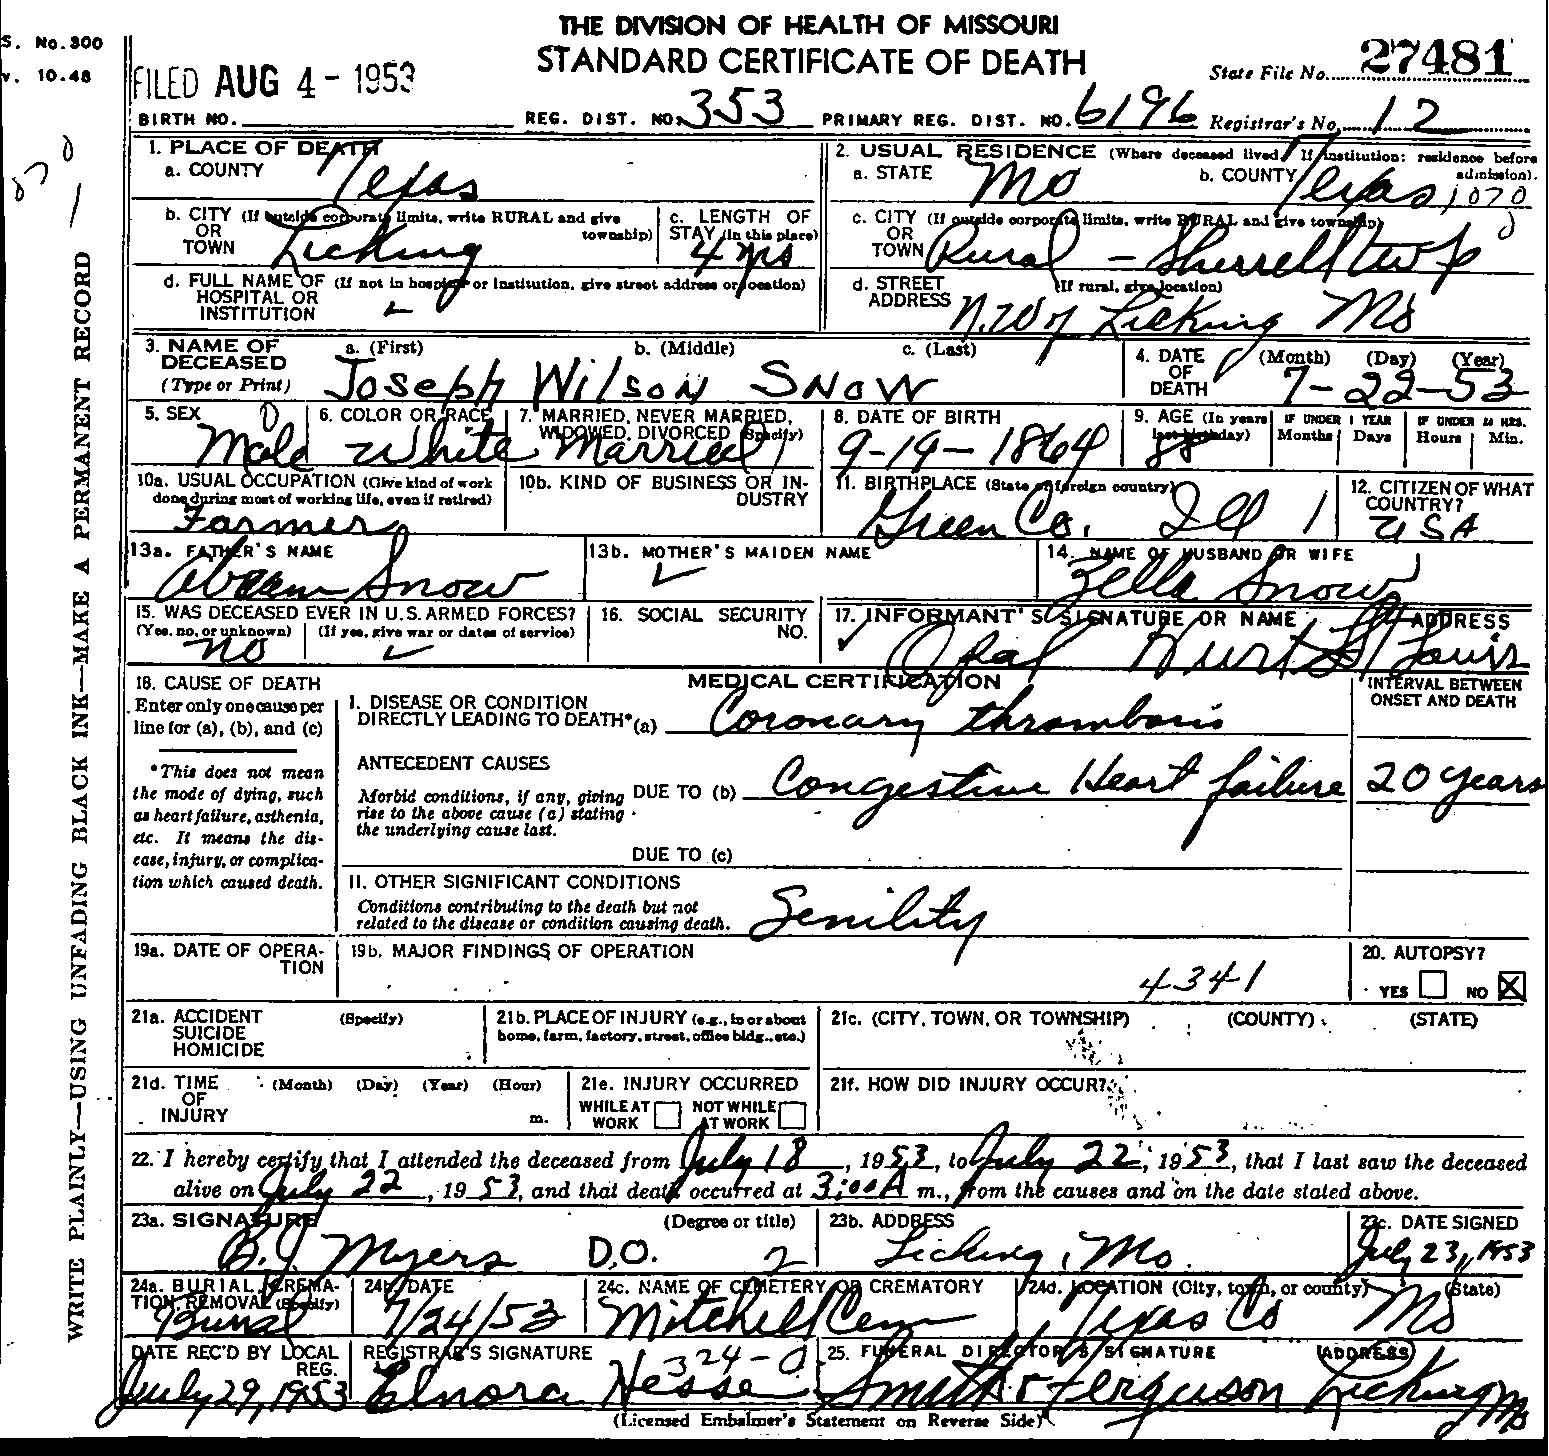 THE DIVISION OF HEALTH OF MISSOURI
STANDARD CERTIFICATE OF DEATH
S. No. 300
v. 10-48
FILED AUG 4 - 1953
State File No. 27481
BIRTH NO. REG. DIST. NO. 353 PRIMARY REG. DIST. NO. 6196 Registrar's No. 12
WRITE PLAINLY—USING UNFADING BLACK INK—MAKE A PERMANENT RECORD
1. PLACE OF DEATH
a. COUNTY Texas
b. CITY (If outside corporate limits, write RURAL and give township)
OR
TOWN Licking
c. LENGTH OF STAY (in this place)
4 yrs
d. FULL NAME OF (If not in hospital or institution, give street address or location)
HOSPITAL OR
INSTITUTION
2. USUAL RESIDENCE (Where deceased lived. If institution: residence before admission).
a. STATE Mo b. COUNTY Texas 1070
c. CITY (If outside corporate limits, write RURAL and give township)
OR
TOWN Rural - Sherrell twp
d. STREET (If rural, give location)
ADDRESS N.W of Licking Mo
3. NAME OF DECEASED (Type or Print)
a. (First) b. (Middle) c. (Last)
Joseph Wilson Snow
4. DATE OF DEATH (Month) (Day) (Year)
7-22-53
5. SEX
Male
6. COLOR OR RACE
White
7. MARRIED, NEVER MARRIED, WIDOWED, DIVORCED (Specify)
Married
8. DATE OF BIRTH
9-19-1864
9. AGE (In years last birthday)
88
IF UNDER 1 YEAR
Months Days
IF UNDER 24 HRS.
Hours Min.
10a. USUAL OCCUPATION (Give kind of work done during most of working life, even if retired)
Farmer
10b. KIND OF BUSINESS OR INDUSTRY
11. BIRTHPLACE (State or foreign country)
Green Co. Ill
12. CITIZEN OF WHAT COUNTRY?
USA
13a. FATHER'S NAME
Abram Snow
13b. MOTHER'S MAIDEN NAME
14. NAME OF HUSBAND OR WIFE
Zella Snow
15. WAS DECEASED EVER IN U.S. ARMED FORCES?
(Yes, no, or unknown) (If yes, give war or dates of service)
no
16. SOCIAL SECURITY NO.
17. INFORMANT'S SIGNATURE OR NAME ADDRESS
Opal Hurt St Louis
18. CAUSE OF DEATH
Enter only one cause per line for (a), (b), and (c)
*This does not mean the mode of dying, such as heart failure, asthenia, etc. It means the disease, injury, or complication which caused death.
MEDICAL CERTIFICATION
INTERVAL BETWEEN ONSET AND DEATH
I. DISEASE OR CONDITION
DIRECTLY LEADING TO DEATH* (a) Coronary thrombosis
ANTECEDENT CAUSES
Morbid conditions, if any, giving rise to the above cause (a) stating the underlying cause last.
DUE TO (b) Congestive Heart failure 20 years
DUE TO (c)
II. OTHER SIGNIFICANT CONDITIONS
Conditions contributing to the death but not related to the disease or condition causing death.
Senility
19a. DATE OF OPERATION
19b. MAJOR FINDINGS OF OPERATION
4341
20. AUTOPSY?
YES NO
21a. ACCIDENT (Specify)
SUICIDE
HOMICIDE
21b. PLACE OF INJURY (e.g., in or about home, farm, factory, street, office bldg., etc.)
21c. (CITY, TOWN, OR TOWNSHIP) (COUNTY) (STATE)
21d. TIME OF INJURY (Month) (Day) (Year) (Hour) m.
21e. INJURY OCCURRED
WHILE AT WORK NOT WHILE AT WORK
21f. HOW DID INJURY OCCUR?
22. I hereby certify that I attended the deceased from July 18, 1953, to July 22, 1953, that I last saw the deceased
alive on July 22, 1953, and that death occurred at 3:00A m., from the causes and on the date stated above.
23a. SIGNATURE (Degree or title)
B.J. Myers D.O. 2
23b. ADDRESS
Licking, Mo.
23c. DATE SIGNED
July 23, 1953
24a. BURIAL, CREMATION, REMOVAL (Specify)
Burial
24b. DATE
7/24/53
24c. NAME OF CEMETERY OR CREMATORY
Mitchell Cem
24d. LOCATION (City, town, or county) (State)
Texas Co Mo
DATE REC'D BY LOCAL REG.
July 29, 1953
REGISTRAR'S SIGNATURE 324-0
Elnora Hesse
25. FUNERAL DIRECTOR'S SIGNATURE ADDRESS
Smith & Ferguson Licking Mo
(Licensed Embalmer's Statement on Reverse Side)